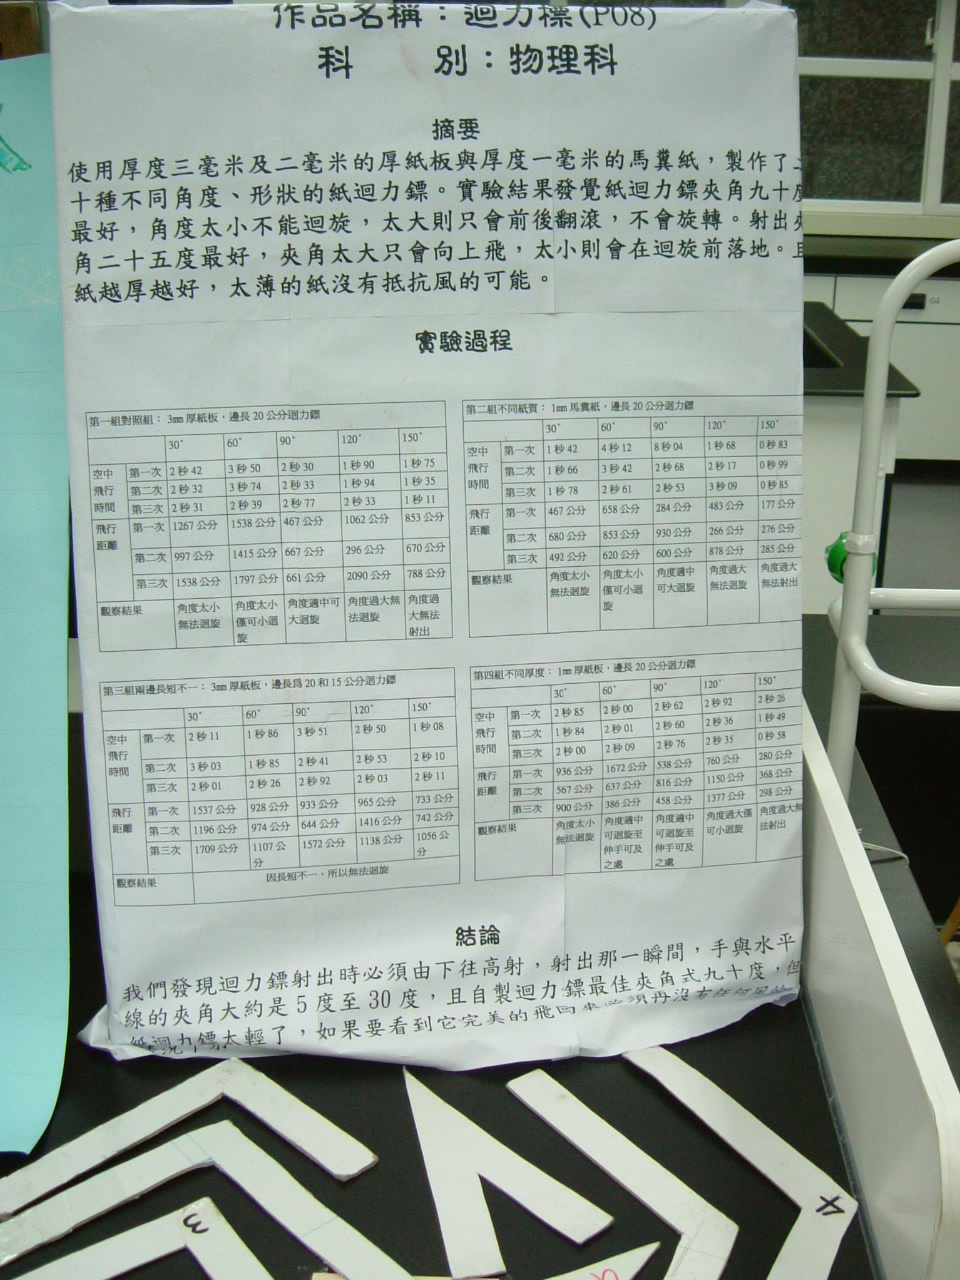 作品名稱：迴力標(P08)
科　別：物理科
摘要
使用厚度三毫米及二毫米的厚紙板與厚度一毫米的馬糞紙，製作了二
十種不同角度、形狀的紙迴力鏢。實驗結果發覺紙迴力鏢夾角九十度
最好，角度太小不能迴旋，太大則只會前後翻滾，不會旋轉。射出夾
角二十五度最好，夾角太大只會向上飛，太小則會在迴旋前落地。且
紙越厚越好，太薄的紙沒有抵抗風的可能。
實驗過程
第一組對照組：3mm 厚紙板，邊長 20 公分迴力鏢
30° 60° 90° 120° 150°
空中飛行時間 第一次 2 秒 42 3 秒 50 2 秒 30 1 秒 90 1 秒 75
第二次 2 秒 32 3 秒 74 2 秒 33 1 秒 94 1 秒 35
第三次 2 秒 31 2 秒 39 2 秒 77 2 秒 33 1 秒 11
飛行距離 第一次 1267 公分 1538 公分 467 公分 1062 公分 853 公分
第二次 997 公分 1415 公分 667 公分 296 公分 670 公分
第三次 1538 公分 1797 公分 661 公分 2090 公分 788 公分
觀察結果 角度太小無法迴旋 角度太小僅可小迴旋 角度適中可大迴旋 角度過大無法迴旋 角度過大無法射出
第二組不同紙質：1mm 馬糞紙，邊長 20 公分迴力鏢
30° 60° 90° 120° 150°
空中飛行時間 第一次 1 秒 42 4 秒 12 8 秒 04 1 秒 68 0 秒 83
第二次 1 秒 66 3 秒 42 2 秒 68 2 秒 17 0 秒 99
第三次 1 秒 78 2 秒 61 2 秒 53 3 秒 09 0 秒 85
飛行距離 第一次 467 公分 658 公分 284 公分 483 公分 177 公分
第二次 680 公分 853 公分 930 公分 266 公分 276 公分
第三次 492 公分 620 公分 600 公分 878 公分 285 公分
觀察結果 角度太小無法迴旋 角度太小僅可小迴旋 角度適中可大迴旋 角度過大無法迴旋 角度過大無法射出
第三組兩邊長短不一：3mm 厚紙板，邊長為 20 和 15 公分迴力鏢
30° 60° 90° 120° 150°
空中飛行時間 第一次 2 秒 11 1 秒 86 3 秒 51 2 秒 50 1 秒 08
第二次 3 秒 03 1 秒 85 2 秒 41 2 秒 53 2 秒 10
第三次 2 秒 01 2 秒 26 2 秒 92 2 秒 03 2 秒 11
飛行距離 第一次 1537 公分 928 公分 933 公分 965 公分 733 公分
第二次 1196 公分 974 公分 644 公分 1416 公分 742 公分
第三次 1709 公分 1107 公分 1572 公分 1138 公分 1056 公分
觀察結果 因長短不一，所以無法迴旋
第四組不同厚度：1mm 厚紙板，邊長 20 公分迴力鏢
30° 60° 90° 120° 150°
空中飛行時間 第一次 2 秒 85 2 秒 00 2 秒 62 2 秒 92 2 秒 26
第二次 1 秒 84 2 秒 01 2 秒 60 2 秒 36 1 秒 49
第三次 2 秒 00 2 秒 09 2 秒 76 2 秒 35 0 秒 58
飛行距離 第一次 936 公分 1672 公分 538 公分 760 公分 280 公分
第二次 567 公分 637 公分 816 公分 1150 公分 368 公分
第三次 900 公分 386 公分 458 公分 1377 公分 298 公分
觀察結果 角度太小無法迴旋 角度適中可迴旋至伸手可及之處 角度適中可迴旋至伸手可及之處 角度過大僅可小迴旋 角度過大無法射出
結論
我們發現迴力鏢射出時必須由下往高射，射出那一瞬間，手與水平
線的夾角大約是 5 度至 30 度，且自製迴力鏢最佳夾角式九十度，但
紙迴力鏢太輕了，如果要看到它完美的飛回來
3
4